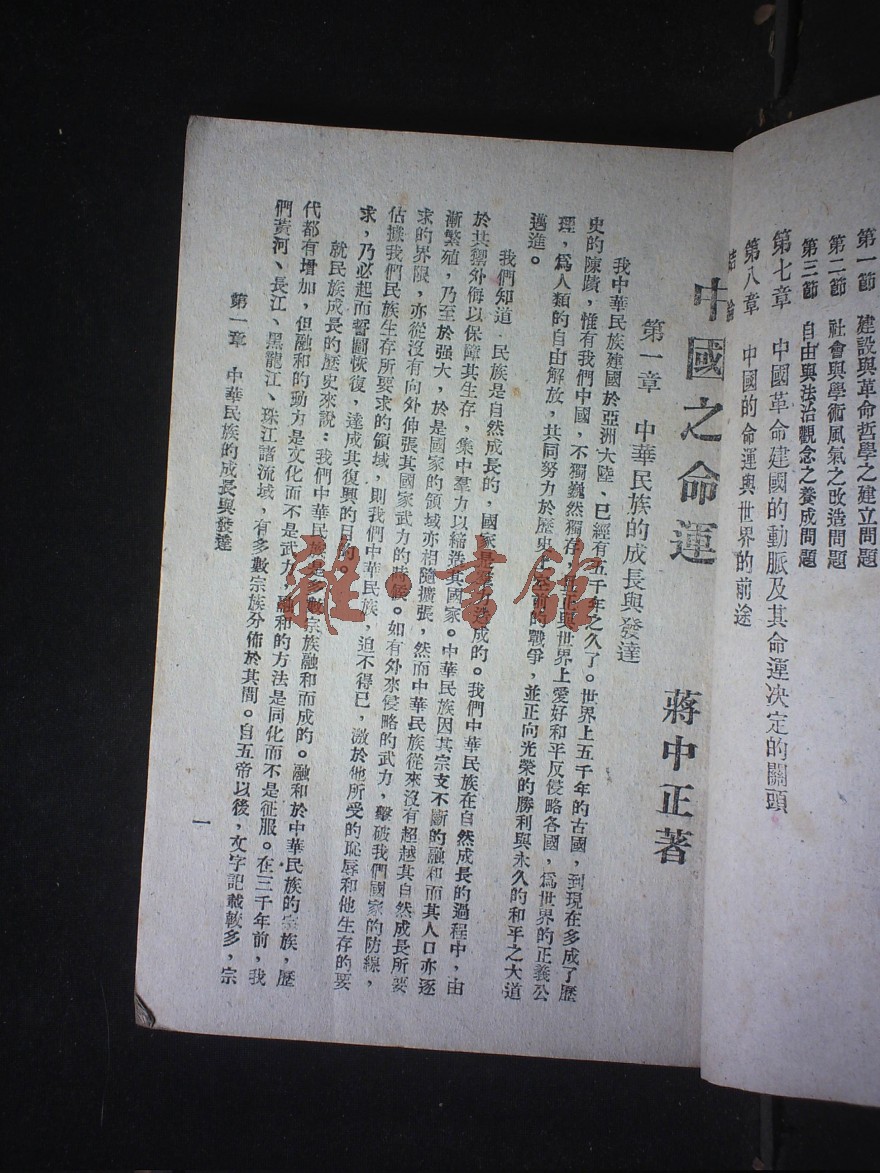 第一節　建設與革命哲學之建立問題
第二節　社會與學術風氣之改造問題
第三節　自由與法治觀念之養成問題
第七章　中國革命建國的動脈及其命運决定的關頭
第八章　中國的命運與世界的前途
結論
中國之命運
蔣中正著
第一章　中華民族的成長與發達
我中華民族建國於亞洲大陸、已經有五千年之久了。世界上五千年的古國，到現在多成了歷
史的陳蹟，惟有我們中國，不獨巍然獨存，且正與世界上愛好和平反侵略各國，爲世界的正義公
理，爲人類的自由解放，共同努力於歷史上空前的戰爭，並正向光榮的勝利與永久的和平之大道
邁進。
我們知道 民族是自然成長的，國家是羣力造成的。我們中華民族在自然成長的過程中，由
於其禦外侮以保障其生存，集中羣力以締造其國家。中華民族因其宗支不斷的融和而其人口亦逐
漸繁殖，乃至於强大，於是國家的領域亦相隨擴張，然而中華民族從來沒有超越其自然成長所要
求的界限，亦從沒有向外伸張其國家武力的時候。如有外來侵略的武力，擊破我們國家的防線，
佔據我們民族生存所要求的領域，則我們中華民族，迫不得已，激於他所受的恥辱和他生存的要
求，乃必起而誓圖恢復，達成其復興的目的。
就民族成長的歷史來說：我們中華民族是多數宗族融和而成的。融和於中華民族的宗族，歷
代都有增加，但融和的動力是文化而不是武力，融和的方法是同化而不是征服。在三千年前，我
們黃河、長江、黑龍江、珠江諸流域，有多數宗族分佈於其間。自五帝以後，文字記載較多，宗
第一章　中華民族的成長與發達
一
雜·書館